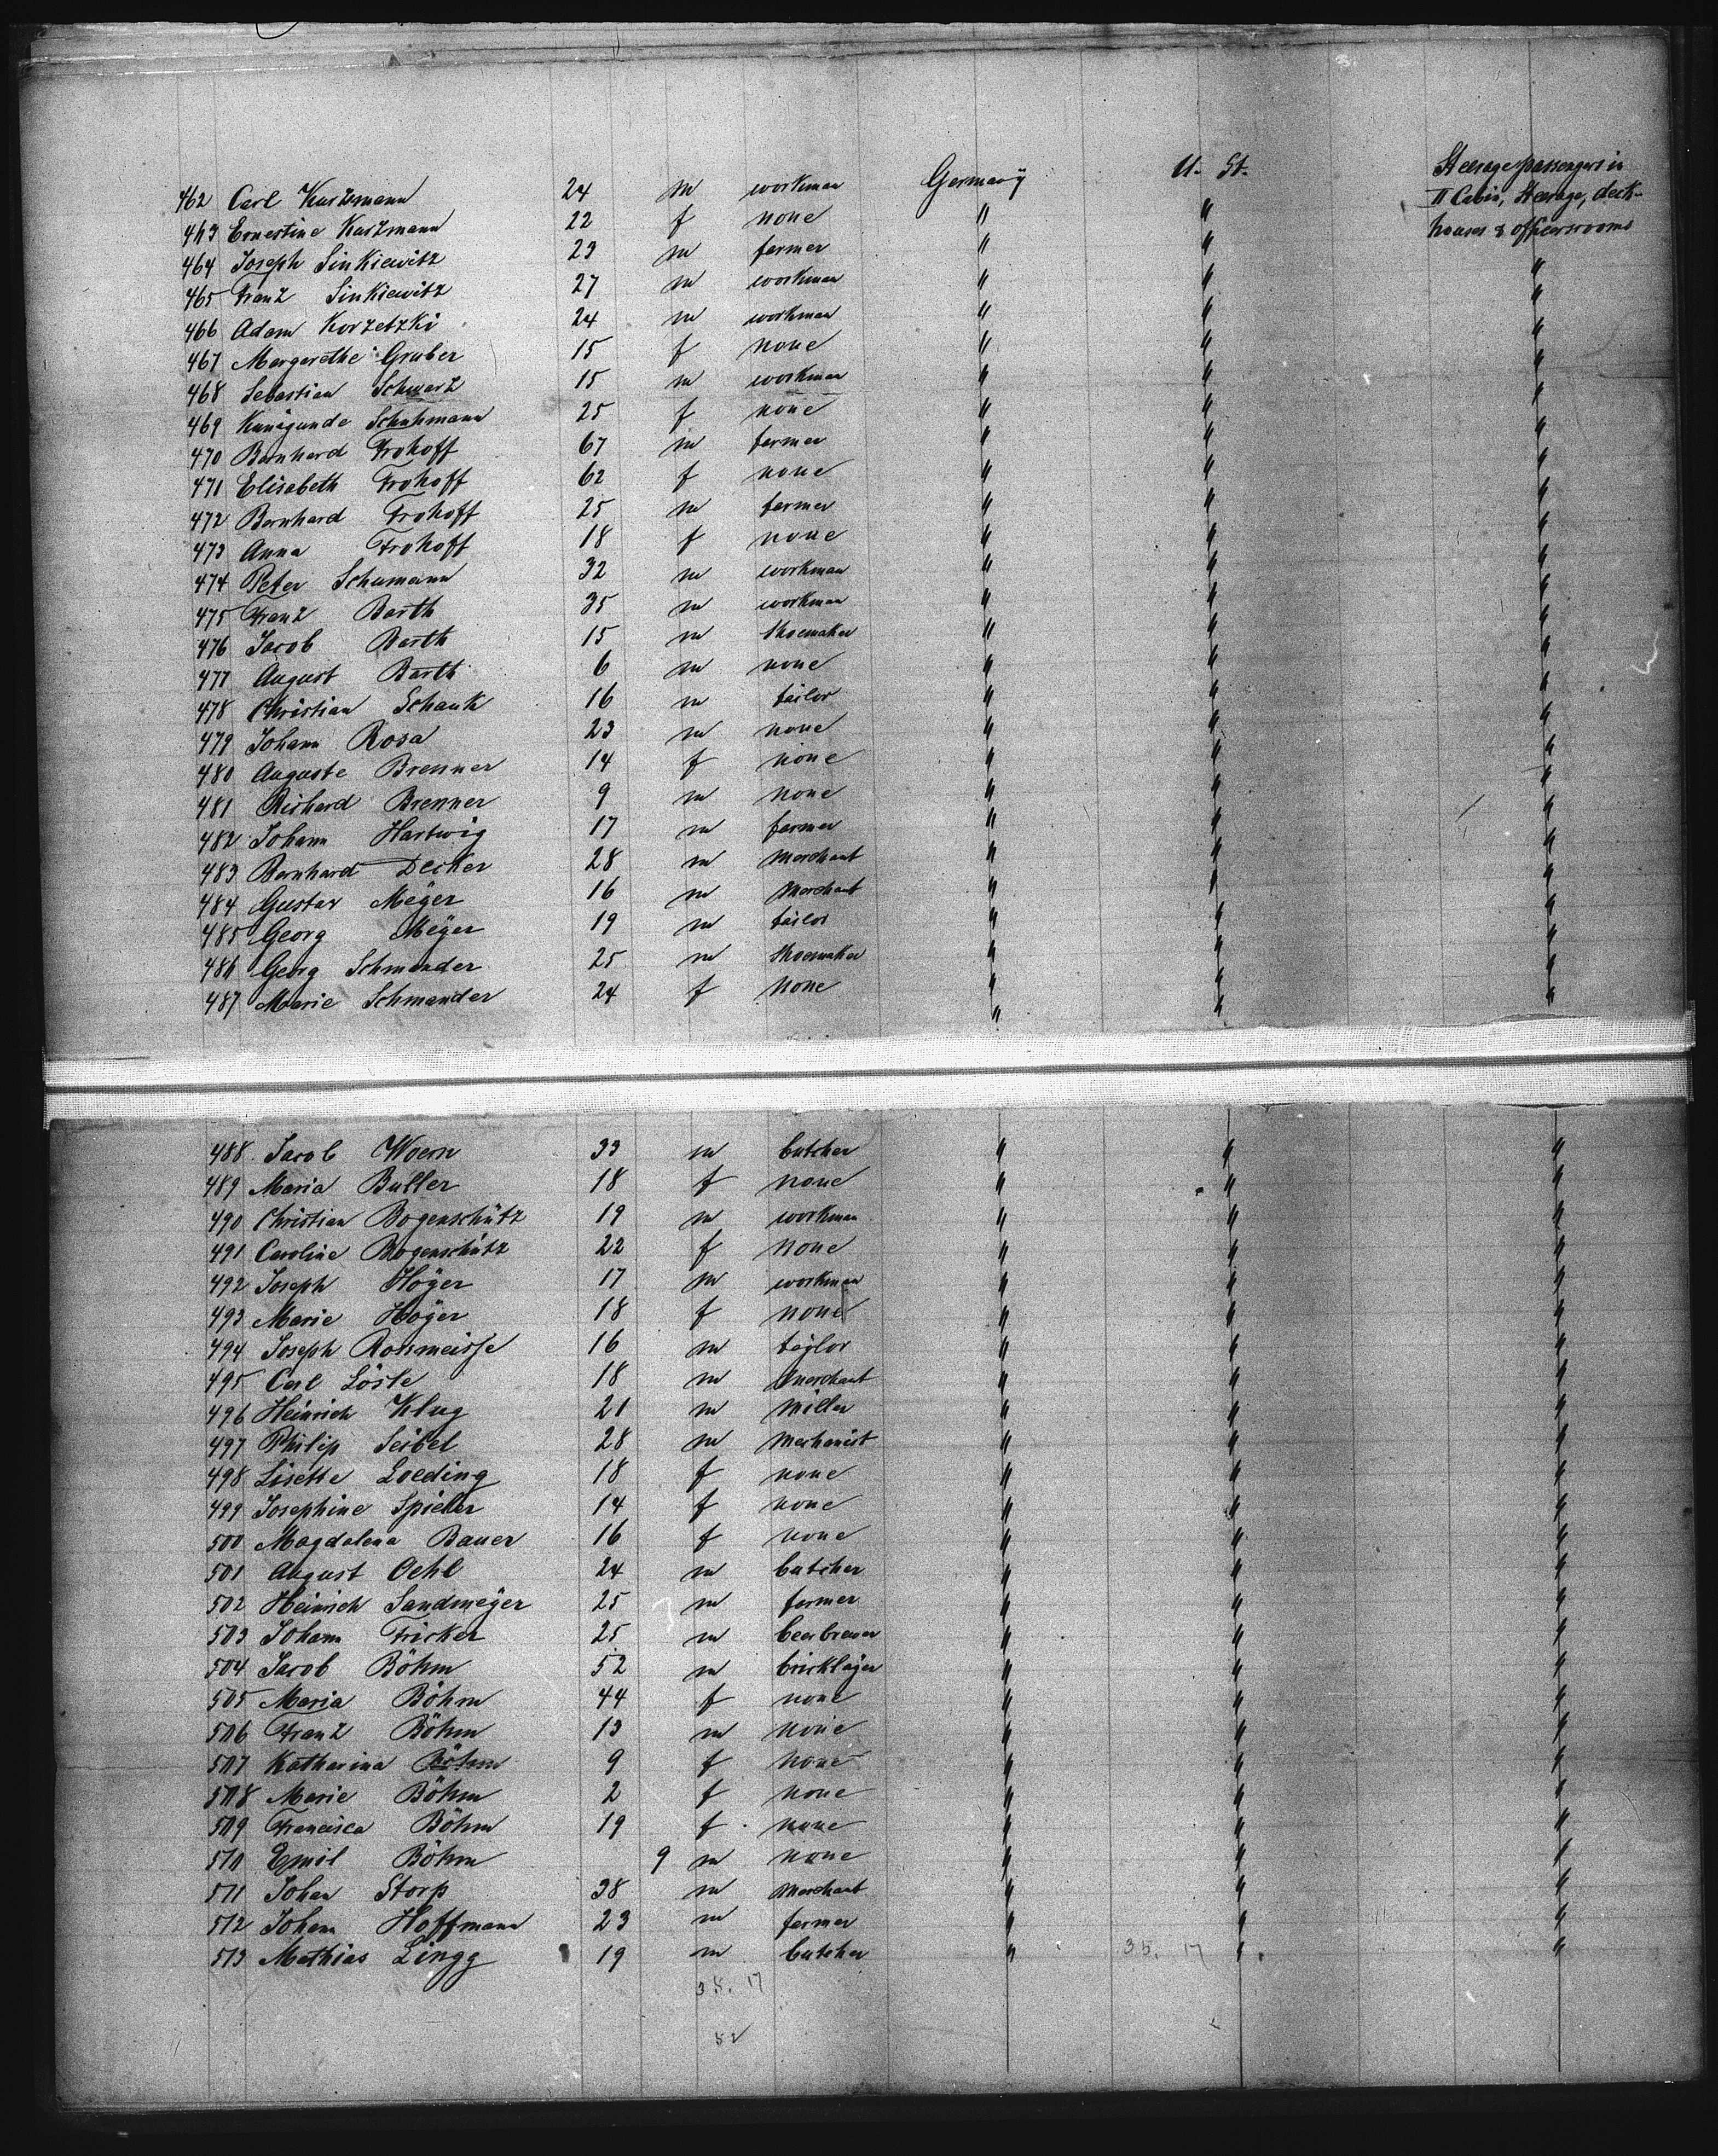 462 Carl Kurzmann 24 m workman Germany U. St. Steerage passengers in
463 Ernestine Kurzmann 22 f none " " II Cabin, Steerage, deck-
464 Joseph Sinkiewitz 23 m farmer " " houses & officersrooms
465 Franz Sinkiewitz 27 m workman " " "
466 Adam Korzetzki 24 m workman " " "
467 Margarethe Gruber 15 f none " " "
468 Sebastian Schwarz 15 m workman " " "
469 Kunigunde Schuhmann 25 f none " " "
470 Bernhard Frohoff 67 m farmer " " "
471 Elisabeth Frohoff 62 f none " " "
472 Bernhard Frohoff 25 m farmer " " "
473 Anna Frohoff 18 f none " " "
474 Peter Schumann 32 m workman " " "
475 Franz Barth 35 m workman " " "
476 Jacob Barth 15 m shoemaker " " "
477 August Barth 6 m none " " "
478 Christian Schauk 16 m tailor " " "
479 Johann Rosa 23 m none " " "
480 Auguste Brenner 14 f none " " "
481 Richard Brenner 9 m none " " "
482 Johann Hartwig 17 m farmer " " "
483 Bernhard Decker 28 m merchant " " "
484 Gustav Meÿer 16 m merchant " " "
485 Georg Meÿer 19 m tailor " " "
486 Georg Schmander 25 m shoemaker " " "
487 Marie Schmander 24 f none " " "
488 Jacob Woern 33 m butcher " " "
489 Maria Buller 18 f none " " "
490 Christian Bogenschütz 19 m workman " " "
491 Caroline Bogenschütz 22 f none " " "
492 Joseph Höÿer 17 m workman " " "
493 Marie Höÿer 18 f none " " "
494 Joseph 16 m taylor " " "
495 Carl Lösle 18 m merchant " " "
496 Heinrich Klug 21 m miller " " "
497 Philip Seibel 28 m mechanist " " "
498 Lisette Loeding 18 f none " " "
499 Josephine Spieler 14 f none " " "
500 Magdalena Bauer 16 f none " " "
501 August Oehl 24 m butcher " " "
502 Heinrich Sandmeÿer 25 m farmer " " "
503 Johann Fricker 25 m beerbrewer " " "
504 Jacob Böhm 52 m bricklayer " " "
505 Maria Böhm 44 f none " " "
506 Franz Böhm 13 m none " " "
507 Katharina Böhm 9 f none " " "
508 Marie Böhm 2 f none " " "
509 Francisca Böhm 19 f none " " "
510 Emil Böhm 9 m none " " "
511 Johan Storp 38 m merchant " " "
512 Johann Hoffmann 23 m farmer " " "
513 Mathias Lingg 19 m butcher " 35. 17 " "
35. 17
52